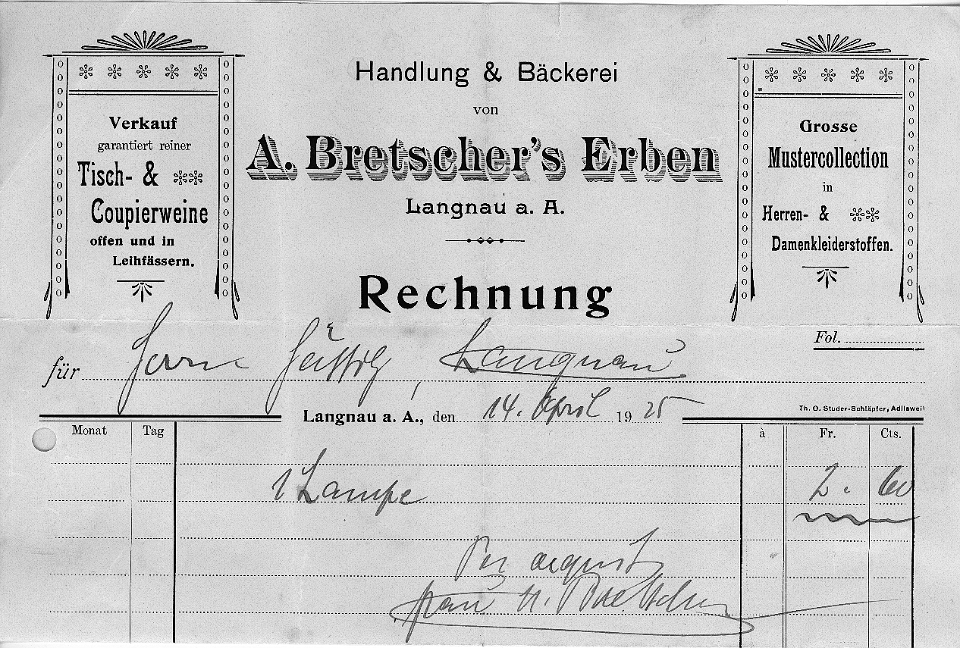 Handlung & Bäckerei
von
A. Bretscher's Erben
Langnau a. A.
Verkauf
garantiert reiner
Tisch- &
Coupierweine
offen und in
Leihfässern.
Grosse
Mustercollection
in
Herren- &
Damenkleiderstoffen.
Rechnung
Fol.
für Herrn , Langnau.
Langnau a. A., den 14. April 1925
Th. O. Studer-Schläpfer, Adliswil
Monat Tag à Fr. Cts.
1 Lampe 2. 60
Per
Frau